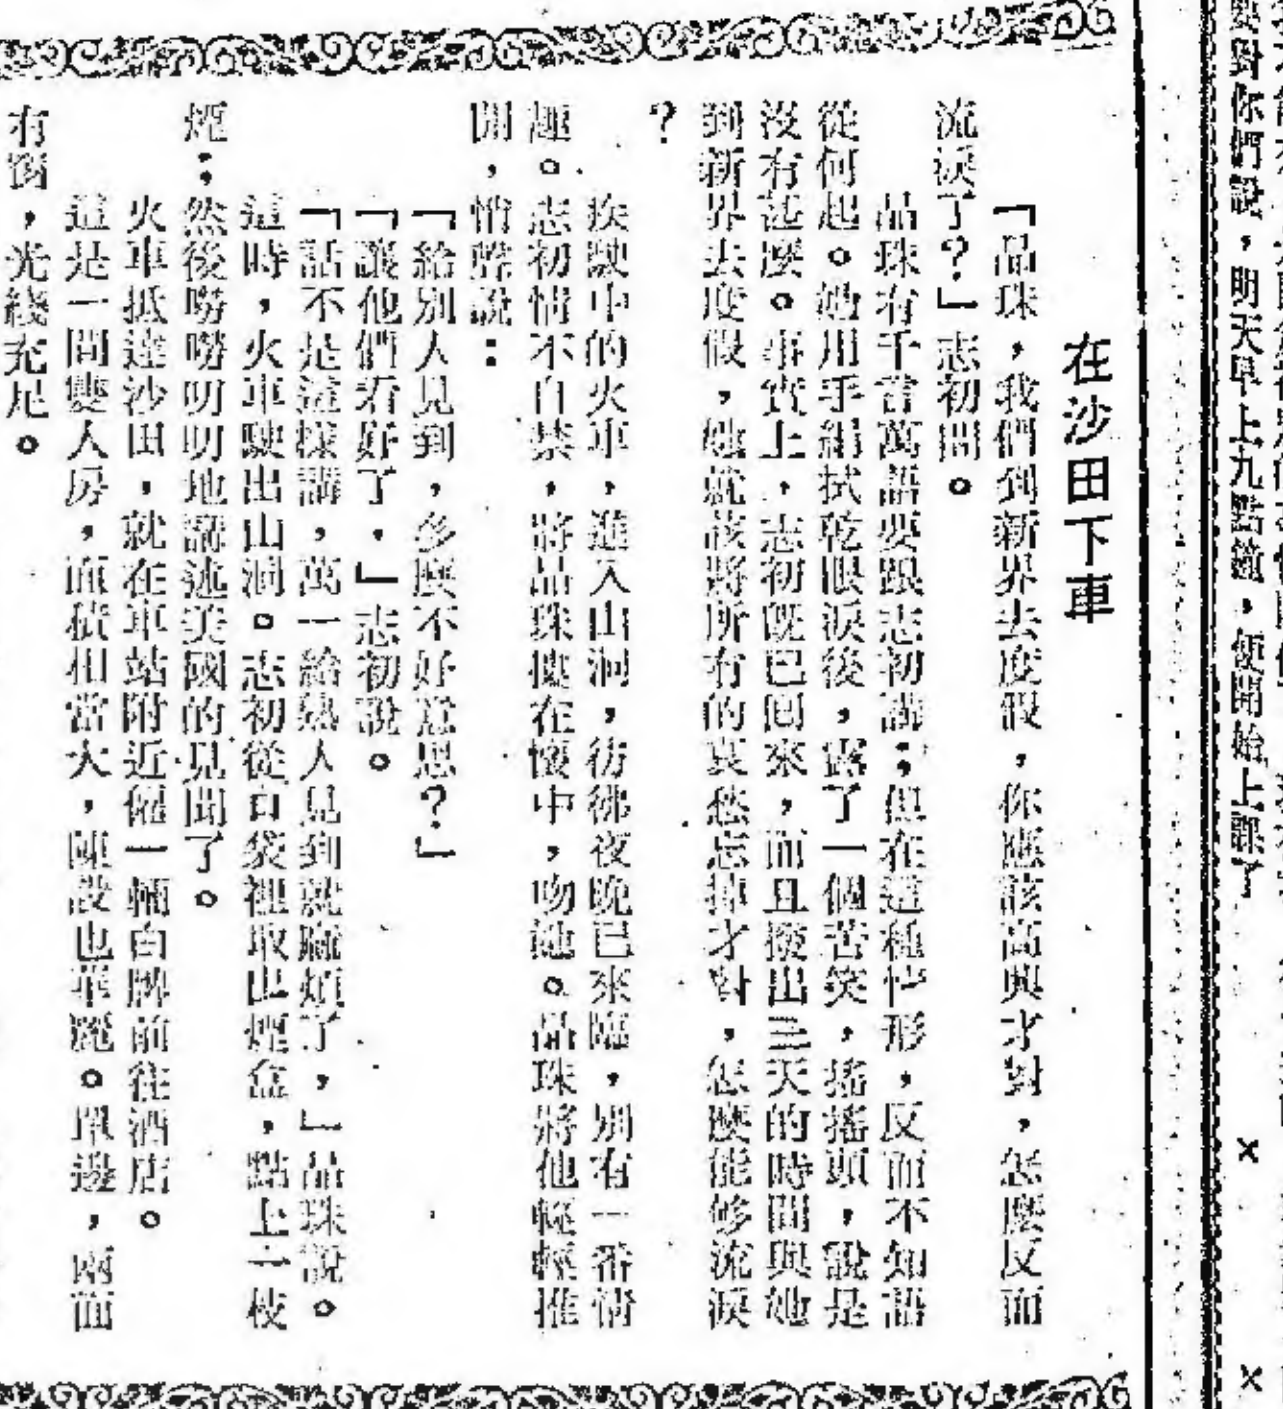 要對你們說，明天早上九點鐘，便開始上課了
×
×
在沙田下車
「品珠，我們到新界去度假，你應該高興才對，怎麼反而
流淚了？」志初問。
品珠有千言萬語要跟志初講；但在這種情形，反而不知語
從何起。她用手絹拭乾眼淚後，露了一個苦笑，搖搖頭，說是
沒有甚麼。事實上，志初既已回來，而且撥出三天的時間與她
到新界去度假，她就該將所有的哀愁忘掉才對，怎麼能够流淚
？
疾駛中的火車，進入山洞，彷彿夜晚已來臨，別有一番情
趣。志初情不自禁，將品珠擁在懷中，吻她。品珠將他輕輕推
開，悄聲說：
「給別人見到，多麼不好意思？」
「讓他們看好了，」志初說。
「話不是這樣講，萬一給熟人見到就麻煩了，」品珠說。
這時，火車駛出山洞。志初從口袋裡取出煙盒，點上一枝
煙；然後嘮嘮叨叨地講述美國的見聞了。
火車抵達沙田，就在車站附近僱一輛白牌前往酒店。
這是一間雙人房，面積相當大，陳設也華麗。單邊，兩面
有窗，光綫充足。